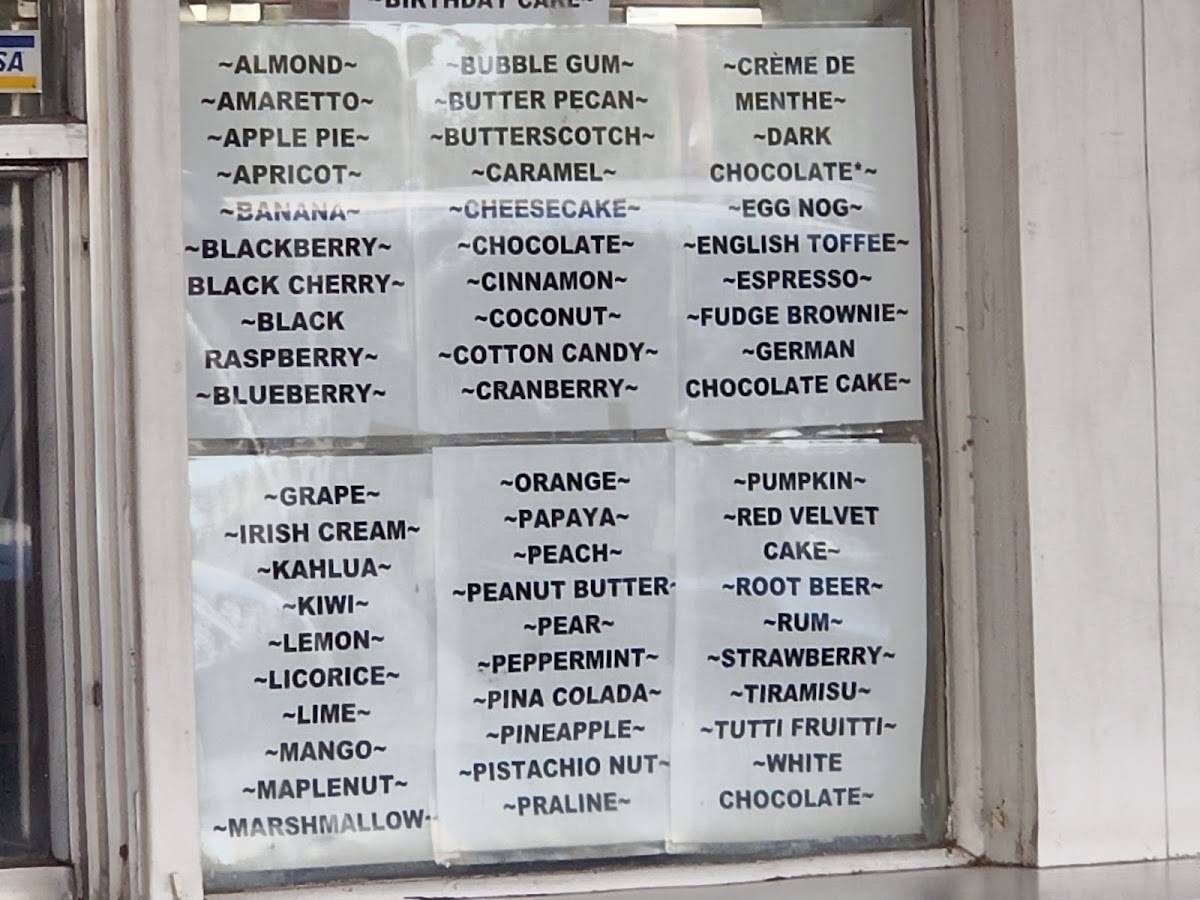 ~BIRTHDAY CAKE~
SA
~ALMOND~
~AMARETTO~
~APPLE PIE~
~APRICOT~
~BANANA~
~BLACKBERRY~
BLACK CHERRY~
~BLACK
RASPBERRY~
~BLUEBERRY~
~BUBBLE GUM~
~BUTTER PECAN~
~BUTTERSCOTCH~
~CARAMEL~
~CHEESECAKE~
~CHOCOLATE~
~CINNAMON~
~COCONUT~
~COTTON CANDY~
~CRANBERRY~
~CRÈME DE
MENTHE~
~DARK
CHOCOLATE*~
~EGG NOG~
~ENGLISH TOFFEE~
~ESPRESSO~
~FUDGE BROWNIE~
~GERMAN
CHOCOLATE CAKE~
~GRAPE~
~IRISH CREAM~
~KAHLUA~
~KIWI~
~LEMON~
~LICORICE~
~LIME~
~MANGO~
~MAPLENUT~
~MARSHMALLOW~
~ORANGE~
~PAPAYA~
~PEACH~
~PEANUT BUTTER~
~PEAR~
~PEPPERMINT~
~PINA COLADA~
~PINEAPPLE~
~PISTACHIO NUT~
~PRALINE~
~PUMPKIN~
~RED VELVET
CAKE~
~ROOT BEER~
~RUM~
~STRAWBERRY~
~TIRAMISU~
~TUTTI FRUITTI~
~WHITE
CHOCOLATE~